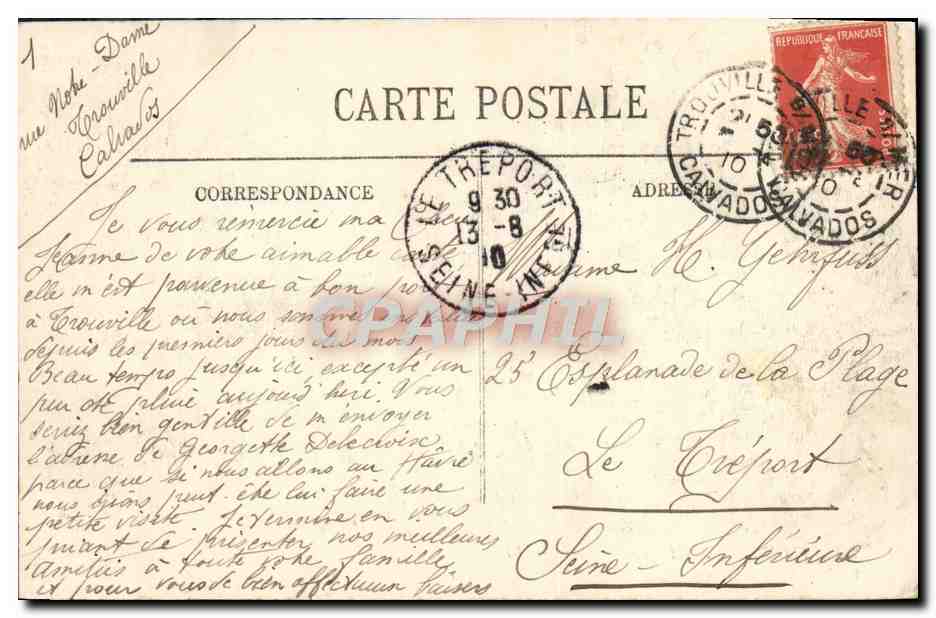 1
rue Notre-Dame
Trouville
Calvados
CARTE POSTALE
REPUBLIQUE FRANÇAISE
TROUVILLE
10
CALVADOS
TROUVILLE
CALVADOS
LE TREPORT
9 30
13 -8
10
SEINE INFRE
CORRESPONDANCE
ADRESSE
Je vous remercie ma chère
Jeanne de votre aimable carte
elle m'est parvenue à bon port
à Trouville où nous sommes
depuis les premiers jours du mois
Beau temps jusqu'ici, excepté un
peu de pluie aujourd'hui. Vous
seriez bien gentille de m'envoyer
l'adresse de Georgette Delacroix
parce que si nous allons au Hâvre
nous irions peut-être lui faire une
petite visite. Je termine en vous
priant de présenter nos meilleures
amitiés à toute votre famille
et pour vous de bien affectueux baisers
Madame H. Gehrfuss
25 Esplanade de la Plage
Le Tréport
Seine-Inférieure
CPAPHIL